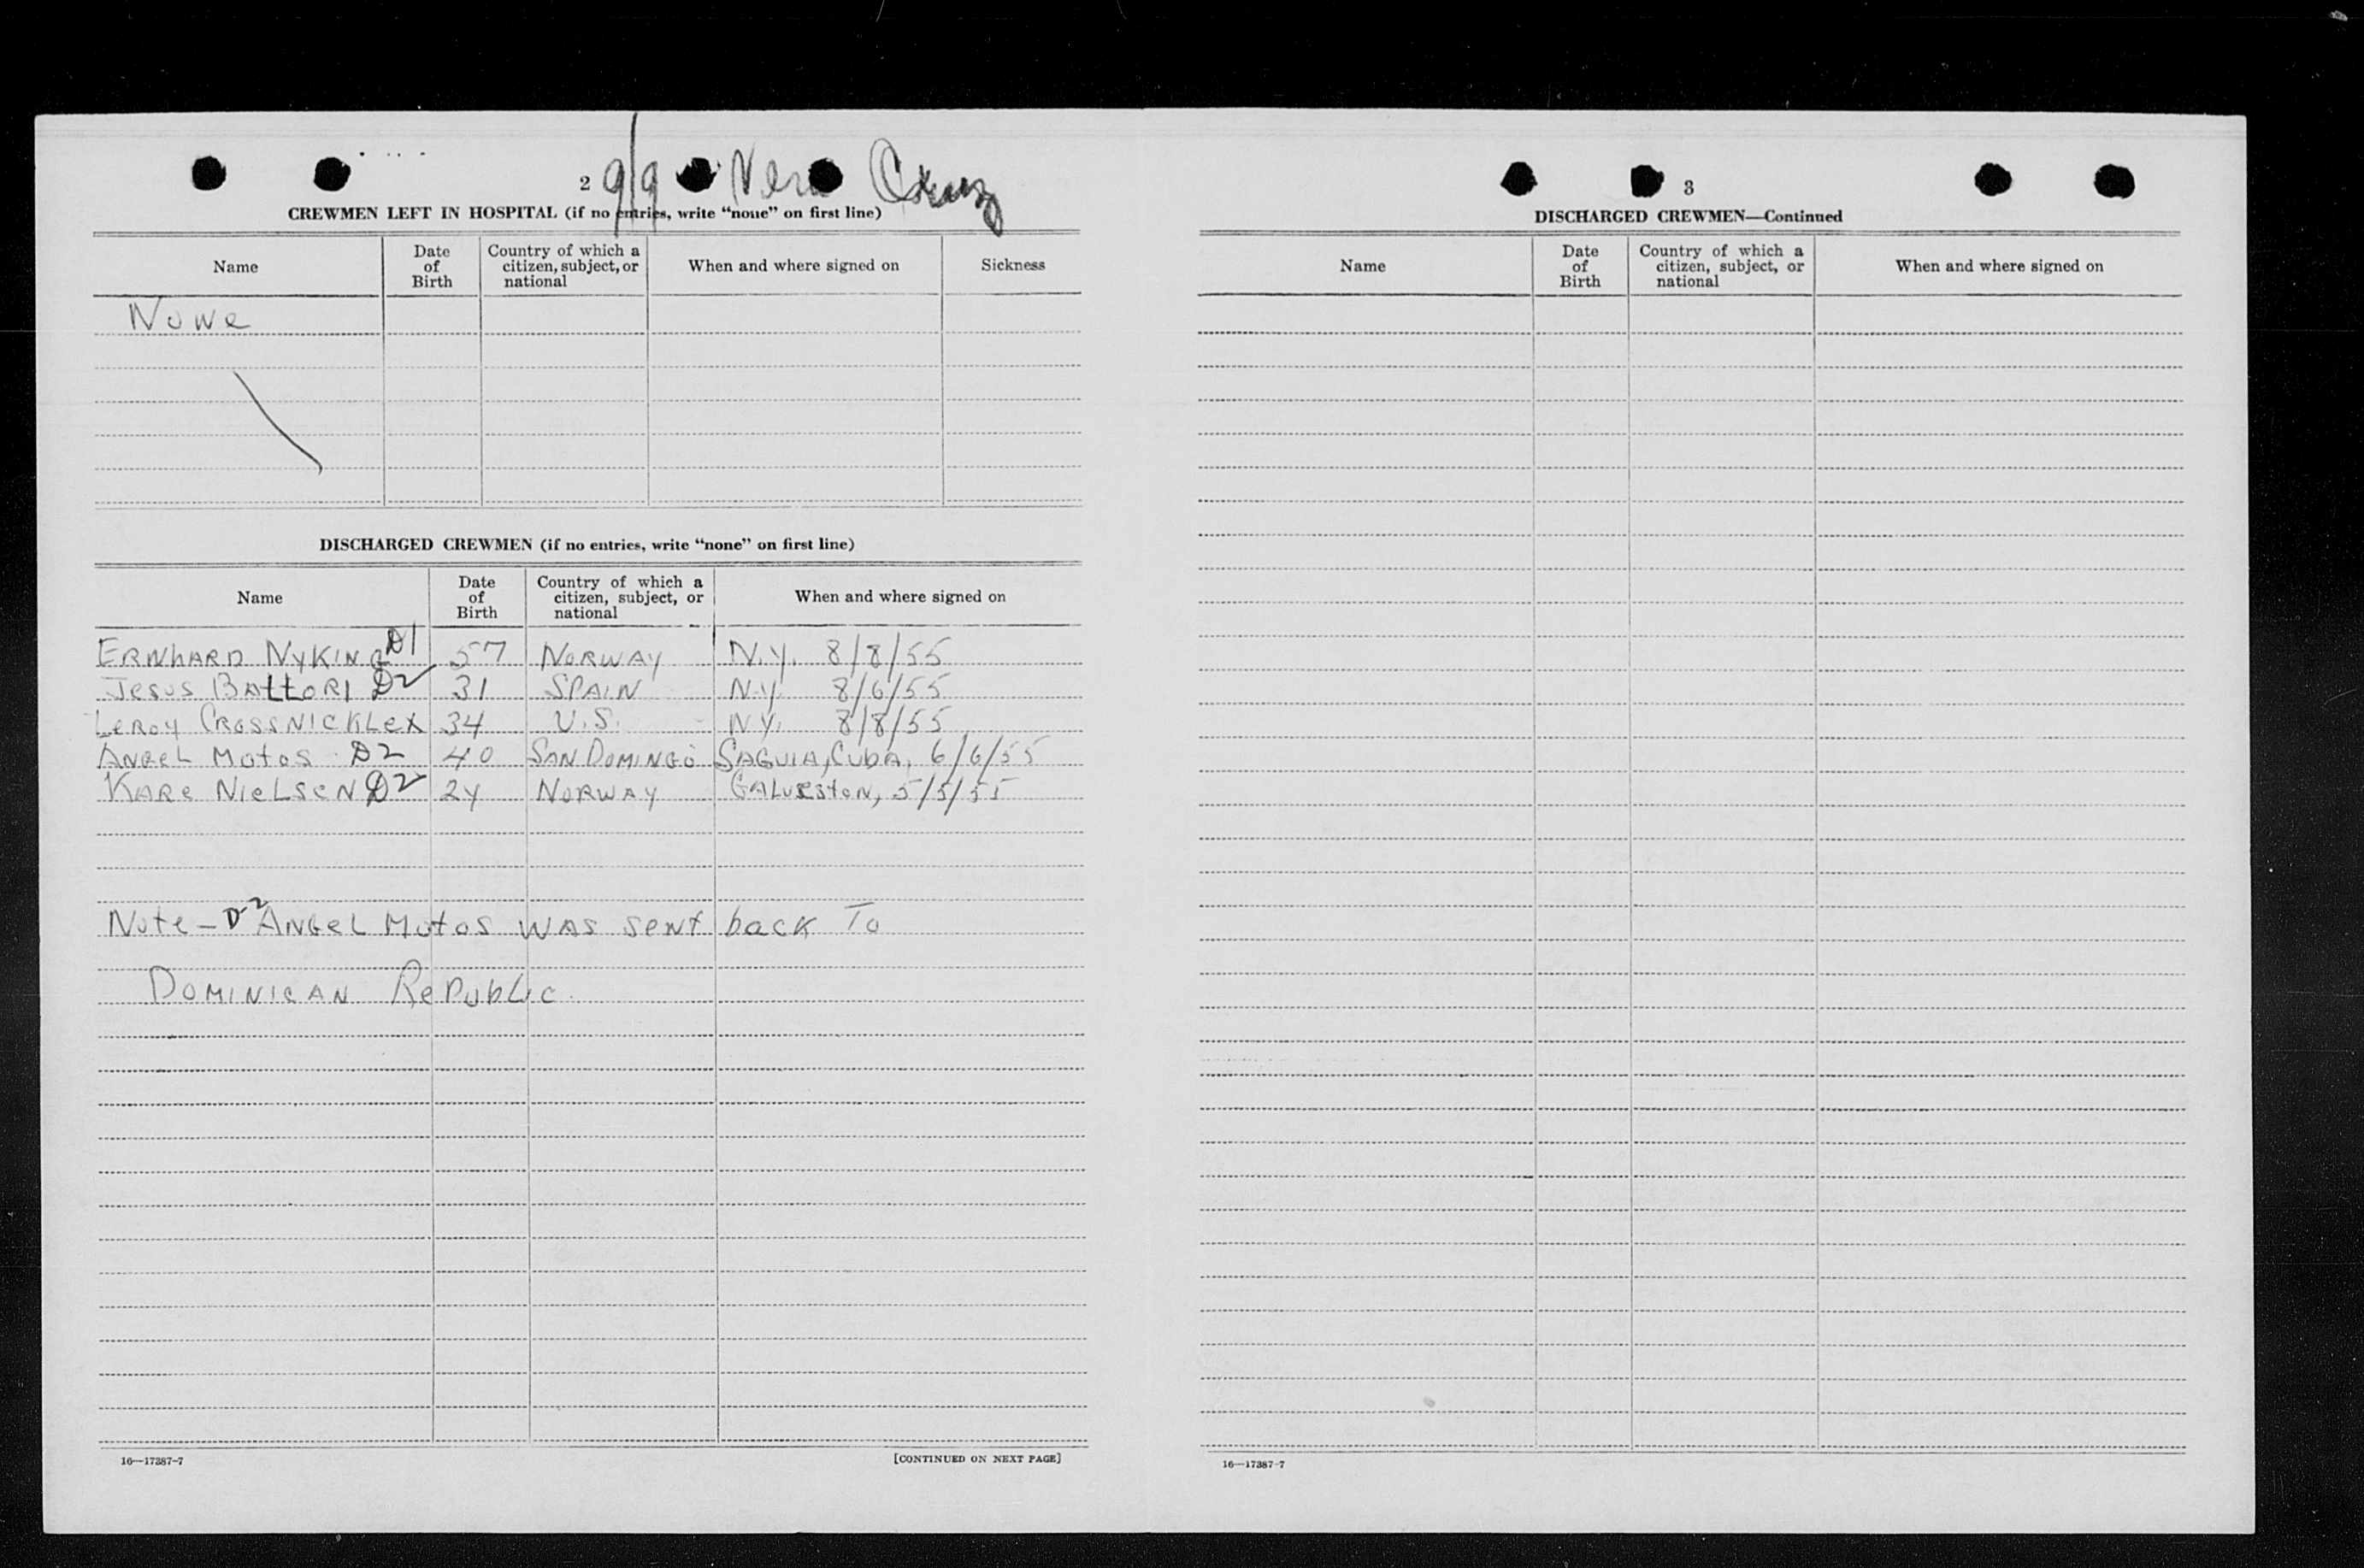 2 9/9 Vera Cruz
CREWMEN LEFT IN HOSPITAL (if no entries, write “none” on first line)
Name Date of Birth Country of which a citizen, subject, or national When and where signed on Sickness
None
DISCHARGED CREWMEN (if no entries, write “none” on first line)
Name Date of Birth Country of which a citizen, subject, or national When and where signed on
ERNhARD NyKING D1 57 NORWAY N.Y. 8/8/55
Jesus BAttORI D2 31 SPAIN N.Y. 8/6/55
LeRoy CROSSNICKLEX 34 U.S. N.Y. 8/8/55
ANGEL MOtOS D2 40 SAN DOMINGO SAGUIA, CubA, 6/6/55
KARe NIeLSeN D2 24 NORWAY GALVEStON, 5/5/55
Note - D-2 ANGeL MOtOS WAS SeNt back To
DOMINICAN RePubLic.
16—17387-7 [CONTINUED ON NEXT PAGE]
3
DISCHARGED CREWMEN—Continued
Name Date of Birth Country of which a citizen, subject, or national When and where signed on
16—17387-7